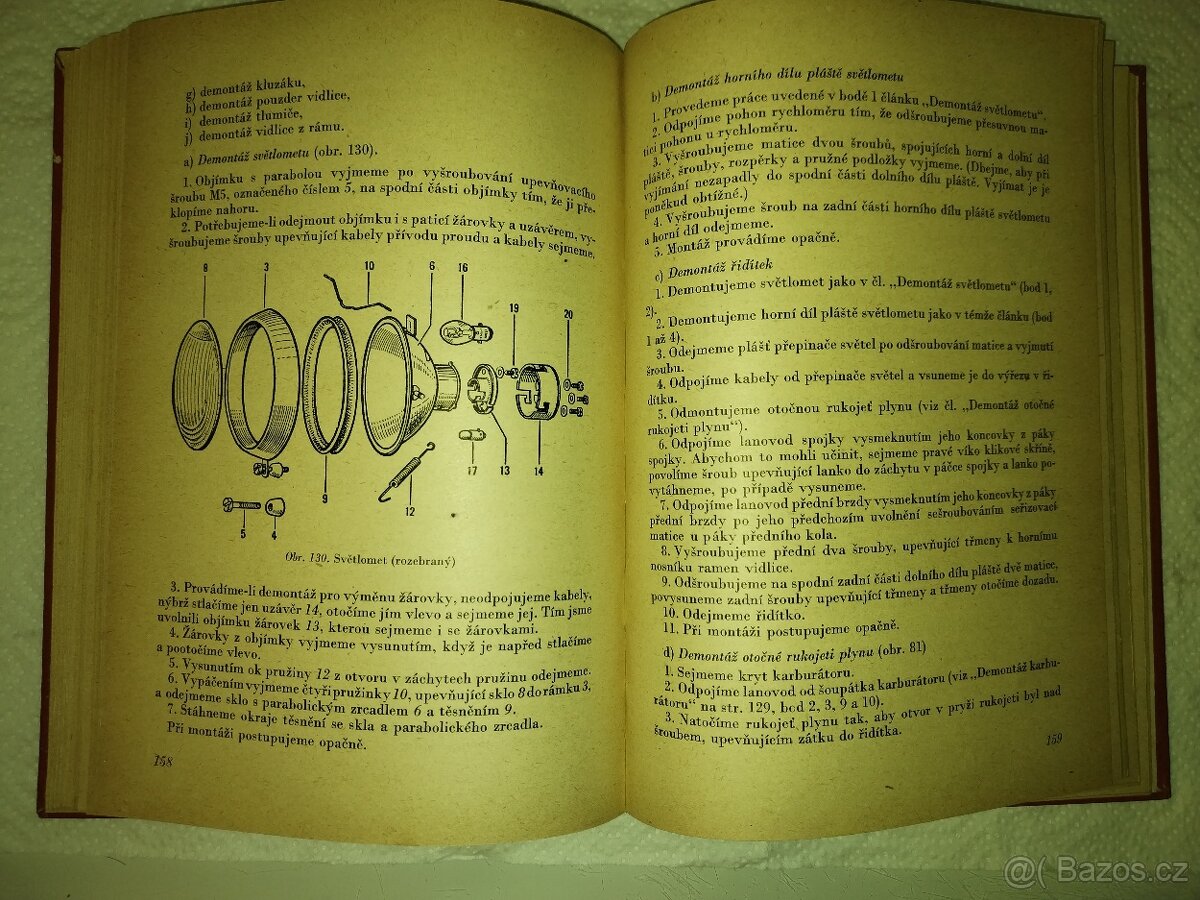 g) demontáž kluzáku,
h) demontáž pouzder vidlice,
i) demontáž tlumiče,
j) demontáž vidlice z rámu.
a) Demontáž světlometu (obr. 130).
1. Objímku s parabolou vyjmeme po vyšroubování upevňovacího
šroubu M5, označeného číslem 5, na spodní části objímky tím, že ji pře-
klopíme nahoru.
2. Potřebujeme-li odejmout objímku i s paticí žárovky a uzávěrem, vy-
šroubujeme šrouby upevňující kabely přívodu proudu a kabely sejmeme.
8 3 10 6 16 19 20
9 12 17 13 14
5 4
Obr. 130. Světlomet (rozebraný)
3. Provádíme-li demontáž pro výměnu žárovky, neodpojujeme kabely,
nýbrž stlačíme jen uzávěr 14, otočíme jím vlevo a sejmeme jej. Tím jsme
uvolnili objímku žárovek 13, kterou sejmeme i se žárovkami.
4. Žárovky z objímky vyjmeme vysunutím, když je napřed stlačíme
a pootočíme vlevo.
5. Vysunutím ok pružiny 12 z otvoru v záchytech pružinu odejmeme.
6. Vypáčením vyjmeme čtyři pružinky 10, upevňující sklo 8 do rámku 3,
a odejmeme sklo s parabolickým zrcadlem 6 a těsněním 9.
7. Stáhneme okraje těsnění se skla a parabolického zrcadla.
Při montáži postupujeme opačně.
158
b) Demontáž horního dílu pláště světlometu
1. Provedeme práce uvedené v bodě 1 článku „Demontáž světlometu“.
2. Odpojíme pohon rychloměru tím, že odšroubujeme přesuvnou ma-
tici pohonu u rychloměru.
3. Vyšroubujeme matice dvou šroubů, spojujících horní a dolní díl
pláště, šrouby, rozpěrky a pružné podložky vyjmeme. (Dbejme, aby při
vyjímání nezapadly do spodní části dolního dílu pláště. Vyjímat je je
poněkud obtížné.)
4. Vyšroubujeme šroub na zadní části horního dílu pláště světlometu
a horní díl odejmeme.
5. Montáž provádíme opačně.
c) Demontáž řidítek
1. Demontujeme světlomet jako v čl. „Demontáž světlometu“ (bod 1,
2).
2. Demontujeme horní díl pláště světlometu jako v témže článku (bod
1 až 4).
3. Odejmeme plášť přepinače světel po odšroubování matice a vyjmutí
šroubu.
4. Odpojíme kabely od přepinače světel a vsuneme je do výřezu v ři-
dítku.
5. Odmontujeme otočnou rukojeť plynu (viz čl. „Demontáž otočné
rukojeti plynu“).
6. Odpojíme lanovod spojky vysmeknutím jeho koncovky z páky
spojky. Abychom to mohli učinit, sejmeme pravé víko klikové skříně,
povolíme šroub upevňující lanko do záchytu v páčce spojky a lanko po-
vytáhneme, po případě vysuneme.
7. Odpojíme lanovod přední brzdy vysmeknutím jeho koncovky z páky
přední brzdy po jeho předchozím uvolnění sešroubováním seřizovací
matice u páky předního kola.
8. Vyšroubujeme přední dva šrouby, upevňující třmeny k hornímu
nosníku ramen vidlice.
9. Odšroubujeme na spodní zadní části dolního dílu pláště dvě matice,
povysuneme zadní šrouby upevňující třmeny a třmeny otočíme dozadu.
10. Odejmeme řidítko.
11. Při montáži postupujeme opačně.
d) Demontáž otočné rukojeti plynu (obr. 81)
1. Sejmeme kryt karburátoru.
2. Odpojíme lanovod od šoupátka karburátoru (viz „Demontáž karbu-
rátoru“ na str. 129, bod 2, 3, 9 a 10).
3. Natočíme rukojeť plynu tak, aby otvor v pryži rukojeti byl nad
šroubem, upevňujícím zátku do řidítka.
159
@( Bazos.cz